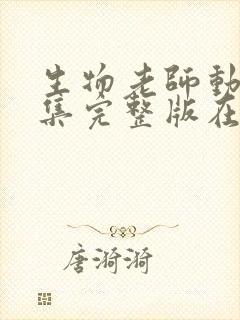 生物老師動
集完整版在
唐漪漪